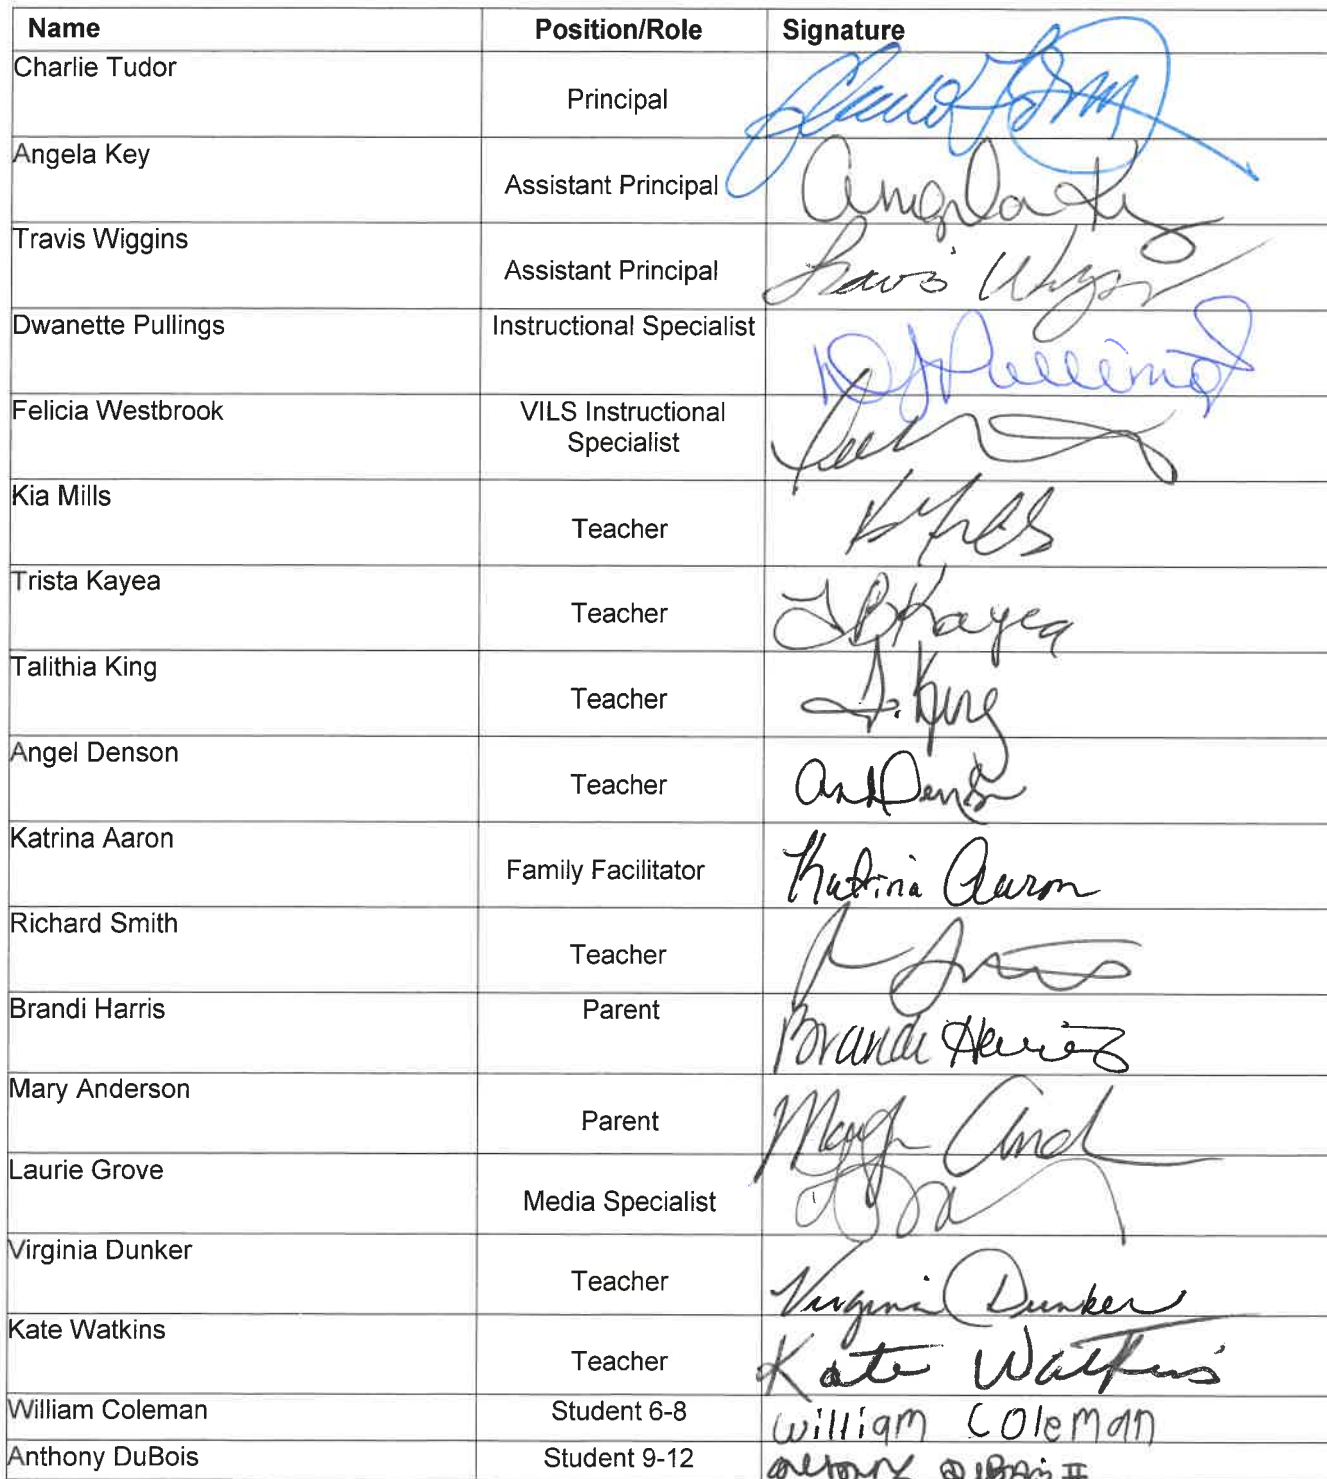 Name Position/Role Signature
Charlie Tudor
Principal
Angela Key
Assistant Principal Angela Key
Travis Wiggins
Assistant Principal Travis
Dwanette Pullings Instructional Specialist
Felicia Westbrook VILS Instructional
Specialist
Kia Mills
Teacher K Mills
Trista Kayea
Teacher T B Kayea
Talithia King
Teacher T. King
Angel Denson
Teacher
Katrina Aaron
Family Facilitator Katrina Aaron
Richard Smith
Teacher
Brandi Harris Parent
Brandi Harris
Mary Anderson
Parent
Laurie Grove
Media Specialist
Virginia Dunker
Teacher Virginia Dunker
Kate Watkins
Teacher Kate Watkins
William Coleman Student 6-8 William Coleman
Anthony DuBois Student 9-12